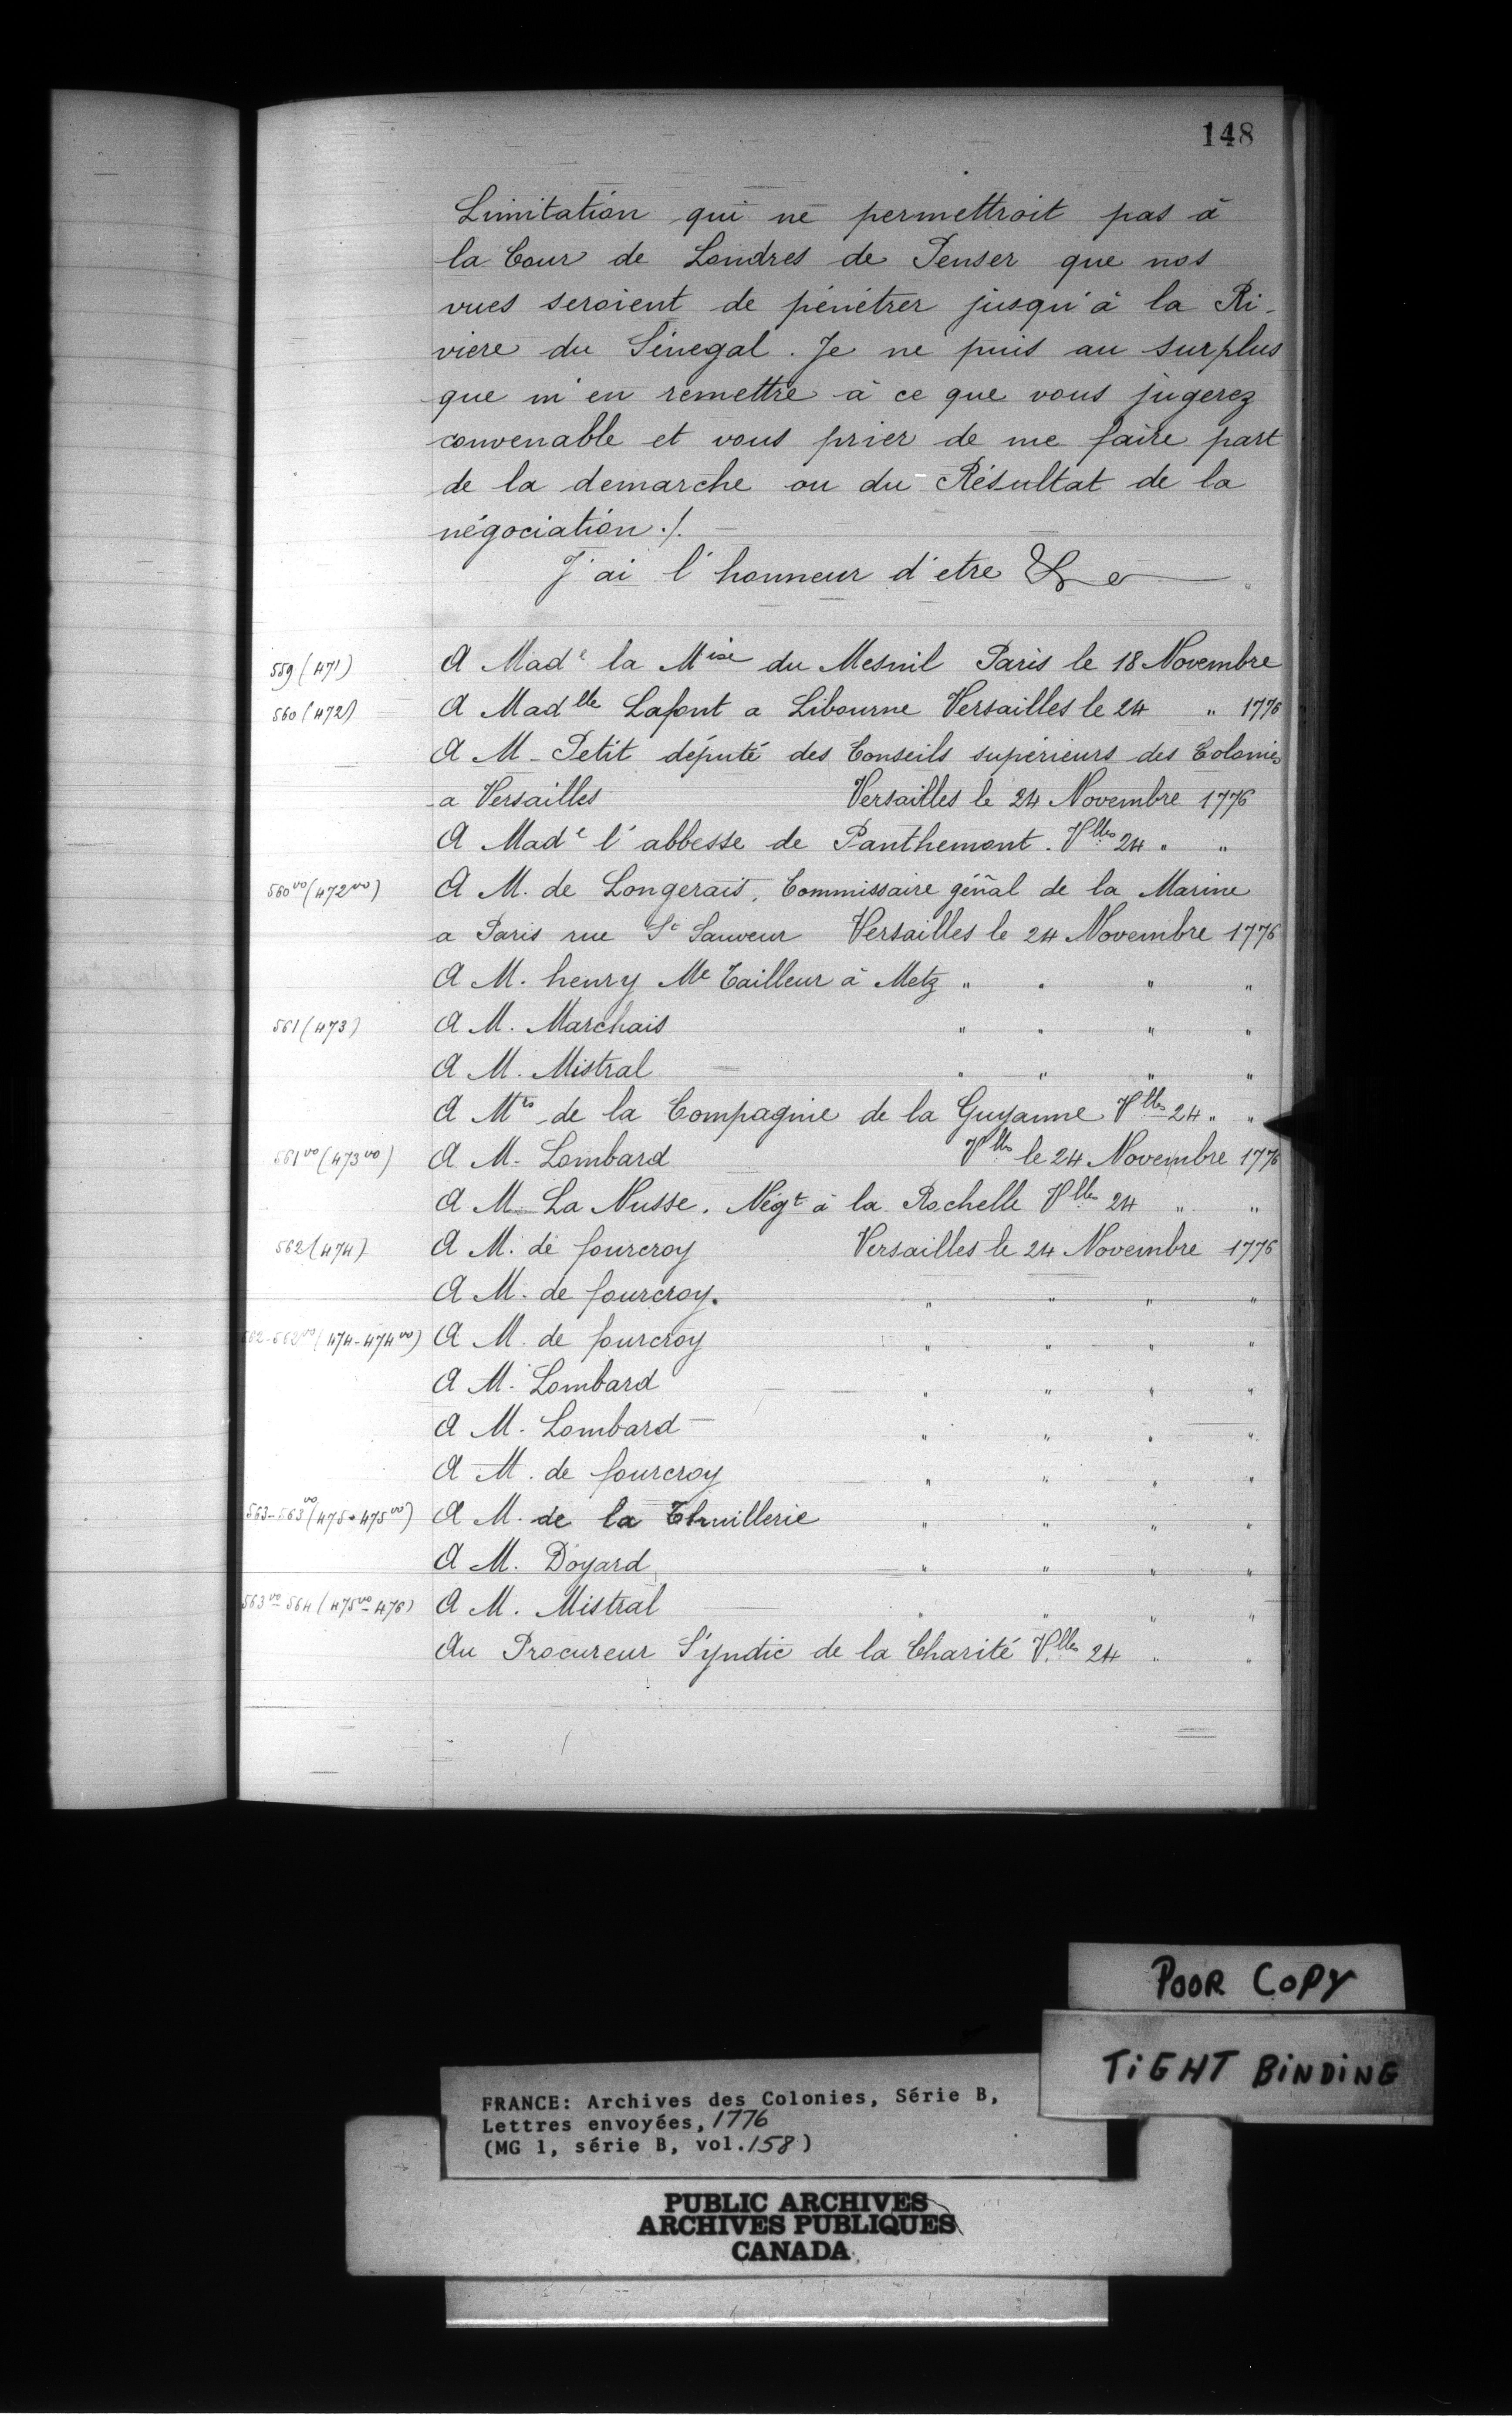 148
Limitation qui ne permettroit pas à
la Cour de Londres de Penser que nos
vues seroient de pénétrer jusqu'à la Ri-
viere du Sénegal. Je ne puis au surplus
que m'en remettre à ce que vous jugerez
convenable et vous prier de me faire part
de la demarche ou du Résultat de la
négociation ./.
J'ai l'honneur d'etre &
559 (471) A Made la Mise du Mesnil Paris le 18 Novembre
560 (472) A Madlle Lafont a Libourne Versailles le 24 " 1776
A M. Petit député des Conseils supérieurs des Colonies
a Versailles Versailles le 24 Novembre 1776
A Made l'abbesse de Panthemont. Vlles 24 " "
560 vo (472 vo) A M. de Longerais, Commissaire géñal de la Marine
a Paris rue St Sauveur Versailles le 24 Novembre 1776
A M. henry Me Tailleur à Metz " " " "
561 (473) A M. Marchais " " " "
A M. Mistral " " " "
A Mrs de la Compagnie de la Guyanne Vlles 24 " "
561 vo (473 vo) A M. Lombard Vlles le 24 Novembre 1776
A M. La Nusse. Négt à la Rochelle Vlles 24 " "
562 (474) A M. de fourcroy Versailles le 24 Novembre 1776
A M. de fourcroy. " " " "
562-562 vo (474-474 vo) A M. de fourcroy " " " "
A M. Lombard " " " "
A M. Lombard " " " "
A M. de fourcroy " " " "
563-563 vo (475-475 vo) A M. de la Thuillerie " " " "
A M. Doyard " " " "
563 vo-564 (475 vo-476) A M. Mistral " " " "
Au Procureur Syndic de la Charité Vlles 24 " "
POOR COPY
TIGHT BINDING
FRANCE: Archives des Colonies, Série B,
Lettres envoyées, 1776
(MG 1, série B, vol. 158)
PUBLIC ARCHIVES
ARCHIVES PUBLIQUES
CANADA